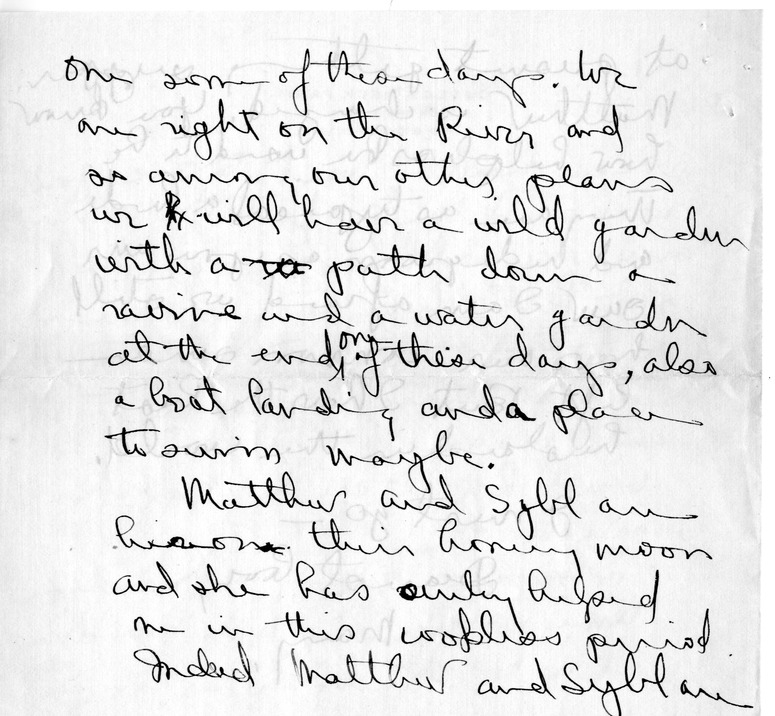 one some of these days. We
are right on the River and
so among our other plans
we will have a wild garden
with a path down a
ravine and a water garden
at the end, one of these days, also
a boat landing and a place
to swim maybe.
Matthew and Sybl are
here on their honeymoon
and she has helped
me in this period.
Indeed Matthew and Sybl are